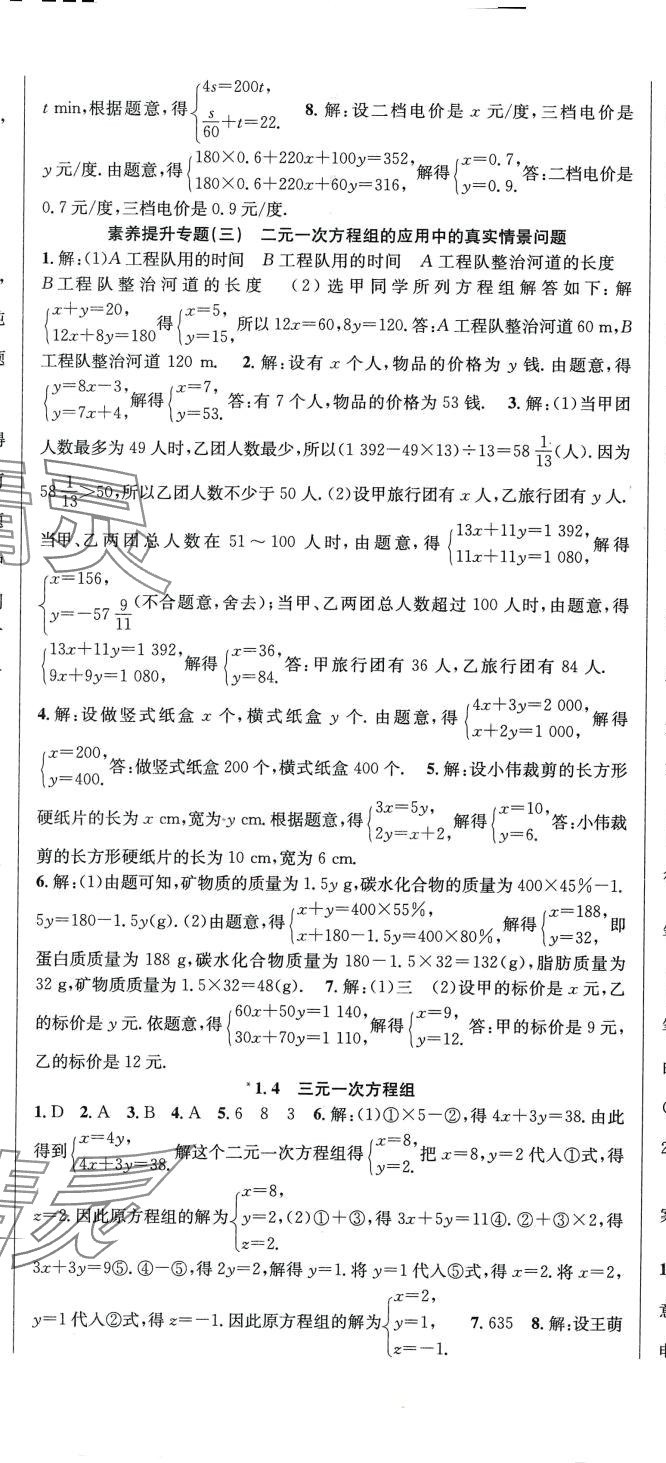 t min,根据题意,得{4s=200t, s/60+t=22. 8. 解:设二档电价是 x 元/度,三档电价是
y 元/度. 由题意,得{180×0.6+220x+100y=352, 180×0.6+220x+60y=316, 解得{x=0.7, y=0.9. 答:二档电价是
0.7 元/度,三档电价是 0.9 元/度.
素养提升专题(三) 二元一次方程组的应用中的真实情景问题
1. 解:(1)A 工程队用的时间 B 工程队用的时间 A 工程队整治河道的长度
B 工程队整治河道的长度 (2)选甲同学所列方程组解答如下:解
{x+y=20, 12x+8y=180 得{x=5, y=15, 所以 12x=60,8y=120. 答:A 工程队整治河道 60 m,B
工程队整治河道 120 m. 2. 解:设有 x 个人,物品的价格为 y 钱. 由题意,得
{y=8x-3, y=7x+4, 解得{x=7, y=53. 答:有 7 个人,物品的价格为 53 钱. 3. 解:(1)当甲团
人数最多为 49 人时,乙团人数最少,所以(1 392-49×13)÷13=58 1/13(人). 因为
58 1/13>50,所以乙团人数不少于 50 人. (2)设甲旅行团有 x 人,乙旅行团有 y 人.
当甲、乙两团总人数在 51～100 人时,由题意,得{13x+11y=1 392, 11x+11y=1 080, 解得
{x=156, y=-57 9/11 (不合题意,舍去);当甲、乙两团总人数超过 100 人时,由题意,得
{13x+11y=1 392, 9x+9y=1 080, 解得{x=36, y=84. 答:甲旅行团有 36 人,乙旅行团有 84 人.
4. 解:设做竖式纸盒 x 个,横式纸盒 y 个. 由题意,得{4x+3y=2 000, x+2y=1 000, 解得
{x=200, y=400. 答:做竖式纸盒 200 个,横式纸盒 400 个. 5. 解:设小伟裁剪的长方形
硬纸片的长为 x cm,宽为 y cm. 根据题意,得{3x=5y, 2y=x+2, 解得{x=10, y=6. 答:小伟裁
剪的长方形硬纸片的长为 10 cm,宽为 6 cm.
6. 解:(1)由题可知,矿物质的质量为 1.5y g,碳水化合物的质量为 400×45%-1.
5y=180-1.5y(g). (2)由题意,得{x+y=400×55%, x+180-1.5y=400×80%, 解得{x=188, y=32, 即
蛋白质质量为 188 g,碳水化合物质量为 180-1.5×32=132(g),脂肪质量为
32 g,矿物质质量为 1.5×32=48(g). 7. 解:(1)三 (2)设甲的标价是 x 元,乙
的标价是 y 元. 依题意,得{60x+50y=1 140, 30x+70y=1 110, 解得{x=9, y=12. 答:甲的标价是 9 元,
乙的标价是 12 元.
*1.4 三元一次方程组
1. D 2. A 3. B 4. A 5. 6 8 3 6. 解:(1)①×5-②,得 4x+3y=38. 由此
得到{x=4y, 4x+3y=38. 解这个二元一次方程组得{x=8, y=2. 把 x=8,y=2 代入①式,得
z=2. 因此原方程组的解为{x=8, y=2, z=2. (2)①+③,得 3x+5y=11④. ②+③×2,得
3x+3y=9⑤. ④-⑤,得 2y=2,解得 y=1. 将 y=1 代入⑤式,得 x=2. 将 x=2,
y=1 代入②式,得 z=-1. 因此原方程组的解为{x=2, y=1, z=-1. 7. 635 8. 解:设王萌